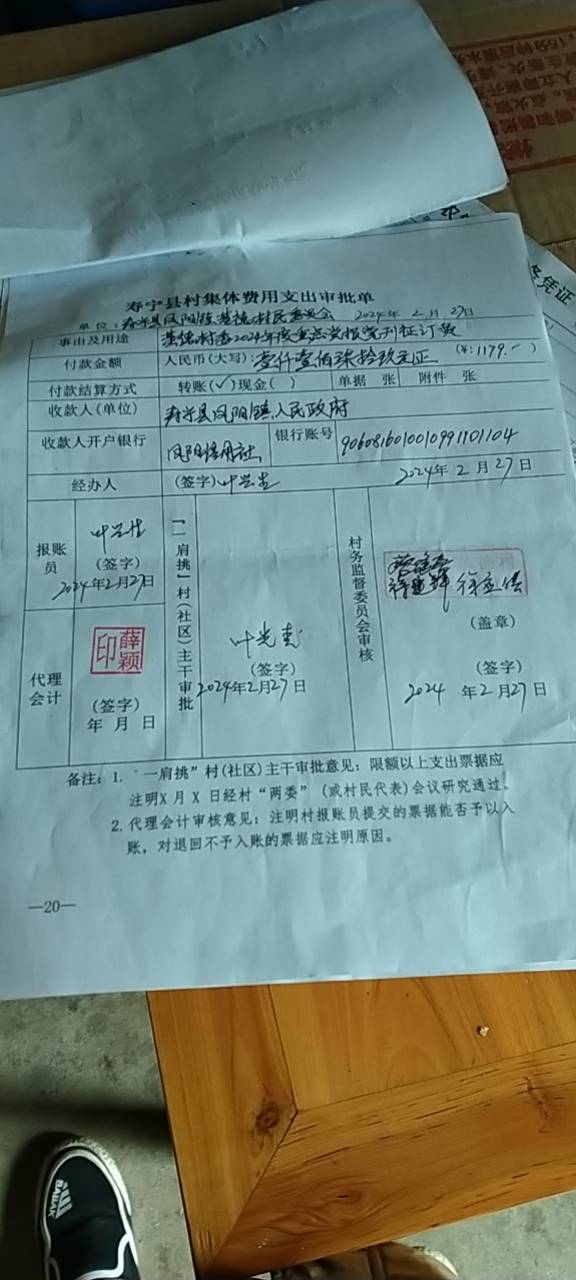 寿宁县村集体费用支出审批单
单位：寿宁县凤阳镇 村民委员会 2024年2月27日
事由及用途 村委2024年度重点党报党刊征订费
付款金额 人民币(大写)：壹仟壹佰柒拾玖元正 (¥:1179.-)
付款结算方式 转账(✓)现金( ) 单据 张 附件 张
收款人(单位) 寿宁县凤阳镇人民政府
收款人开户银行 凤阳信用社 银行账号 9060816010010991101104
经办人 (签字) 2024年2月27日
报账员 (签字) 2024年2月27日
“一肩挑”村(社区)主干审批 (签字) 2024年2月27日
村务监督委员会审核 (盖章) (签字) 2024年2月27日
代理会计 薛颖印 (签字) 年 月 日
备注：1. “一肩挑”村(社区)主干审批意见：限额以上支出票据应
注明X月X日经村“两委”(或村民代表)会议研究通过。
2. 代理会计审核意见：注明村报账员提交的票据能否予以入
账，对退回不予入账的票据应注明原因。
—20—
凭证